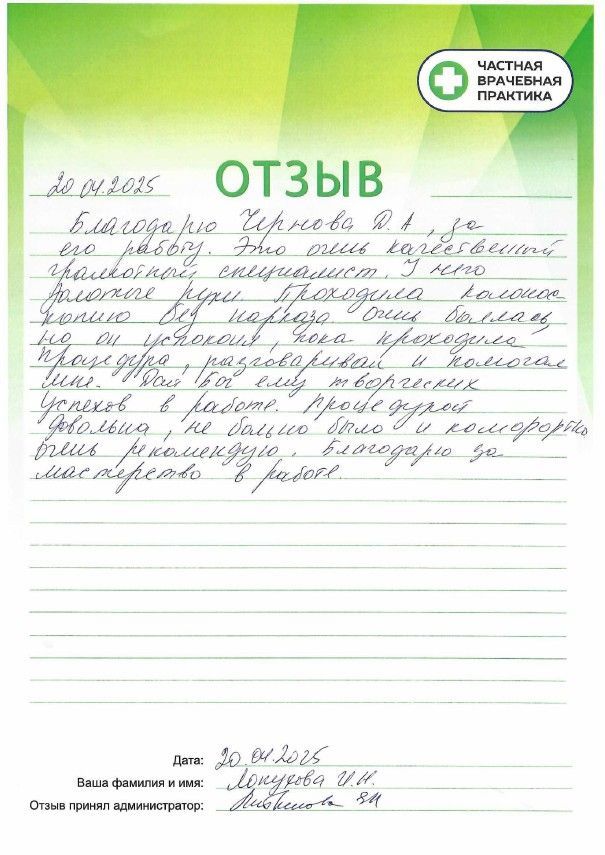 ЧАСТНАЯ
ВРАЧЕБНАЯ
ПРАКТИКА
20.04.2025
ОТЗЫВ
Благодарю Чернова Д.А, за
его работу. Это очень качественный
грамотный специалист. У него
золотые руки. Проходила колонос-
копию без наркоза очень боялась,
но он успокоил, пока проходила
процедура, разговаривал и помогал
мне. Дай Бог ему творческих
успехов в работе. Процедурой
довольна, не больно было и комфортно
очень рекомендую. Благодарю за
мастерство в работе.
Дата: 20.04.2025
Ваша фамилия и имя: Лопухова И.Н.
Отзыв принял администратор: